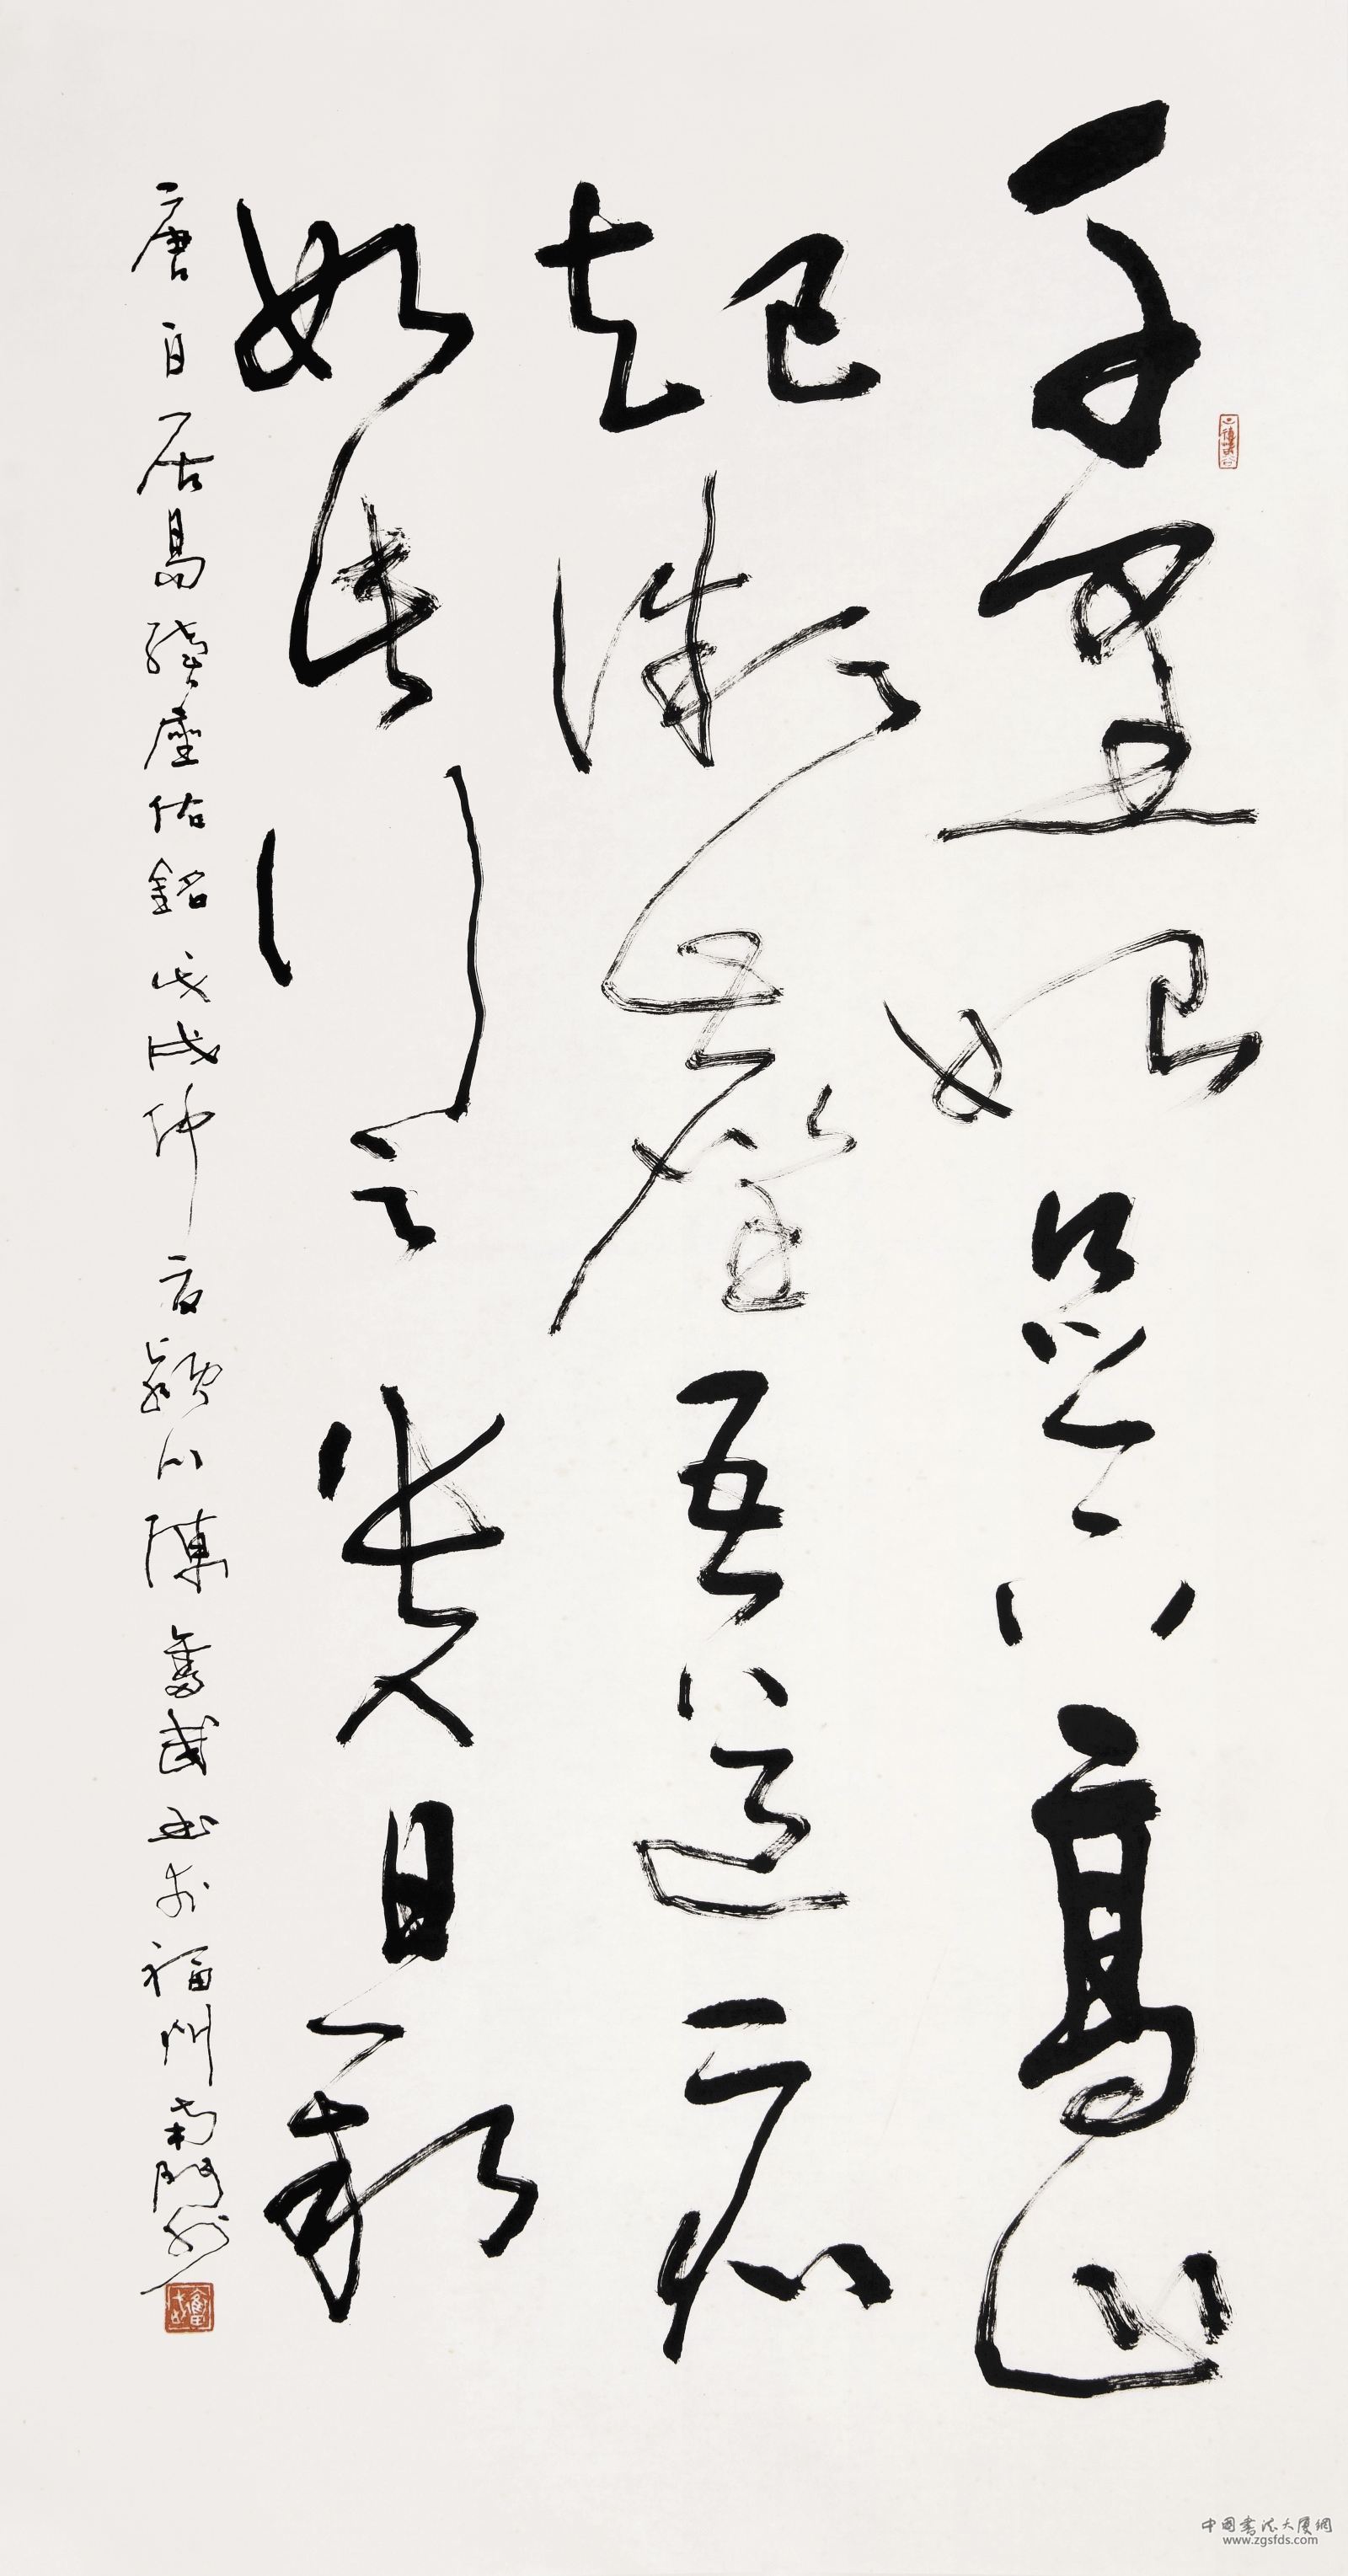 千里始足下高山
起微塵吾道亦
如此行之貴日新
唐白居易續座佑銘戊戌仲夏潁川陳奮武書於福州南門外
中國書法大廈網
www.zgsfds.com